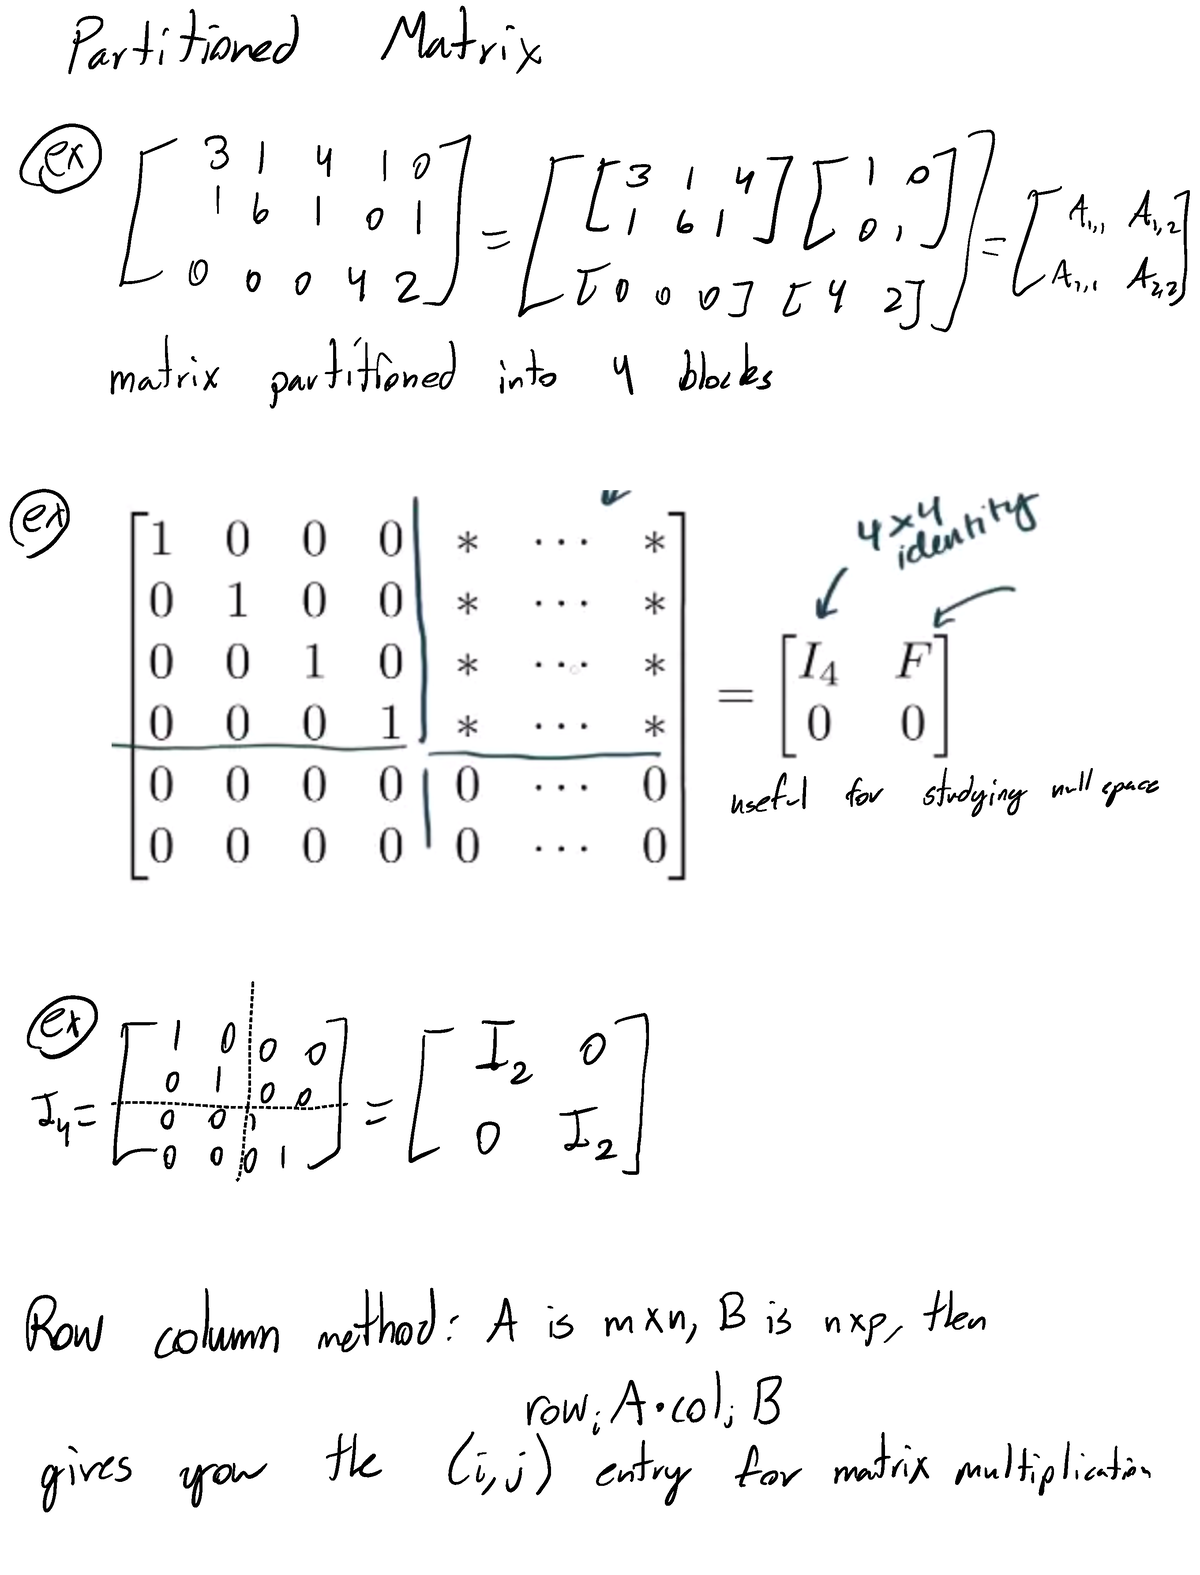 Partitioned Matrix
ex [ 3 1 4 1 0 ; 1 6 1 0 1 ; 0 0 0 4 2 ] = [ [ 3 1 4 ; 1 6 1 ] [ 1 0 ; 0 1 ] ; [ 0 0 0 ] [ 4 2 ] ] = [ A1,1 A1,2 ; A2,1 A2,2 ]
matrix partitioned into 4 blocks
ex
4x4
identity
1 0 0 0 * ... *
0 1 0 0 * ... *
0 0 1 0 * ... *
0 0 0 1 * ... *
0 0 0 0 0 ... 0
0 0 0 0 0 ... 0
= [ I4 F ; 0 0 ]
useful for studying null space
ex
I4 = [ 1 0 0 0 ; 0 1 0 0 ; 0 0 1 ; 0 0 0 1 ] = [ I2 0 ; 0 I2 ]
Row column method: A is mxn, B is nxp, then
rowi A • colj B
gives you the (i,j) entry for matrix multiplication